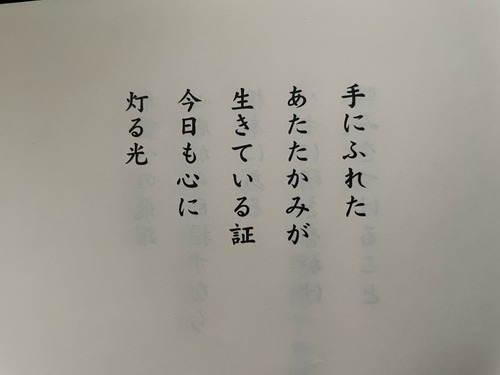 手にふれた
あたたかみが
生きている証
今日も心に
灯る光